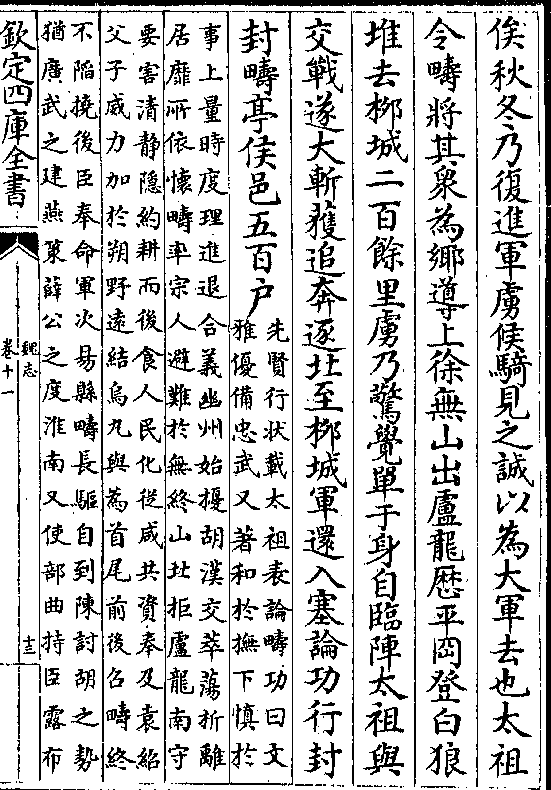 俟秋冬乃復進軍虜候騎見之誠以為大軍去也太祖
令疇將其衆為鄉導上徐無山出盧龍歷平岡登白狼
堆去柳城二百餘里虜乃驚覺單于身自臨陣太祖與
交戰遂大斬獲追奔逐北至柳城軍還入塞論功行封
封疇亭侯邑五百户
先賢行状載太祖表論疇功曰文
雅優備忠武又著和於撫下慎於
事上量時度理進退合義幽州始擾胡漢交萃蕩析離
居靡所依懷疇率宗人避難於無終山北拒盧龍南守
要害清静隠約耕而後食人民化從咸共資奉及袁紹
父子威力加於朔野遠結烏丸與為首尾前後召疇終
不陷撓後臣奉命軍次易縣疇長驅自到陳討胡之勢
猶廣武之建燕策薛公之度淮南又使部曲持臣露布
欽定四庫全書
魏志
卷十一
十三